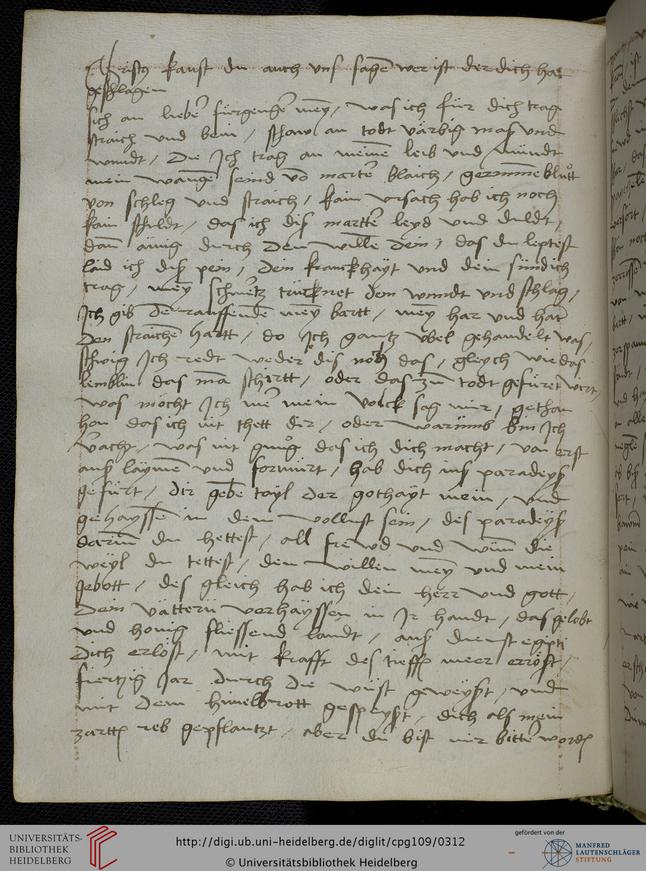 Cristus kanst du auch uns sagē wer ist der dich hat
geschlagen
Sich an lieber fürgengēr mey, was ich für dich trag
straich und bein, schaw an todt värbig mas und
wundt, die Ich trag an meinē leib und mundt
mein wangē seind vō martēr blaich, gerunnē blůtt
von schleg und straich, kain ursach hab ich noch
kain schuldt, das ich dis marttēr leyd und duldt,
dan ainig durch den willē dein, das du leptest
laid ich diß pein, dein kranckhayt und dein sündich
trag, mey schmertz trücknet dein wundt und schlag,
Ich gib den rauffenden mey bartt, mey har und haut
den straichē hartt, do Ich gantz übel gehandelt was,
schwig Ich redt weder dis noch das, gleych wie das
lemblin das mā schirtt, oder das zu todt gefüret wirt,
was mocht Ich mē mein volck sag mir, gethan
hon das ich nit thett dir, oder warumb bin Ich
veracht, was nit gnůg das ich dich macht, von erst
auß laymē und formiirt, hab dich ins paradeyß
gefürt, dir gebē tayl der gothayt mein, und
gehayssē in dem wollust sein, des paradeyß
darin du hettest, all frewd und wun die
weyl du tettest, den willen mey und mein
gebott, des gleich hab ich dein herr und gott,
dein vättern verhayssen in Ir handt, das gelobt
und honig fliessend landt, auß dienst egipti
dich erlöst, mit krafft des tieffē meer erröst,
fiertzig Jar durch die wüst geweyßt, und
mit dem himelbrott gespeyßt, dich als mein
zarttē reb gepflantzt, aber du bist mir bittēr wordē
UNIVERSITÄTS-
BIBLIOTHEK
HEIDELBERG
http://digi.ub.uni-heidelberg.de/diglit/cpg109/0312
© Universitätsbibliothek Heidelberg
gefördert von der
MANFRED
LAUTENSCHLÄGER
STIFTUNG